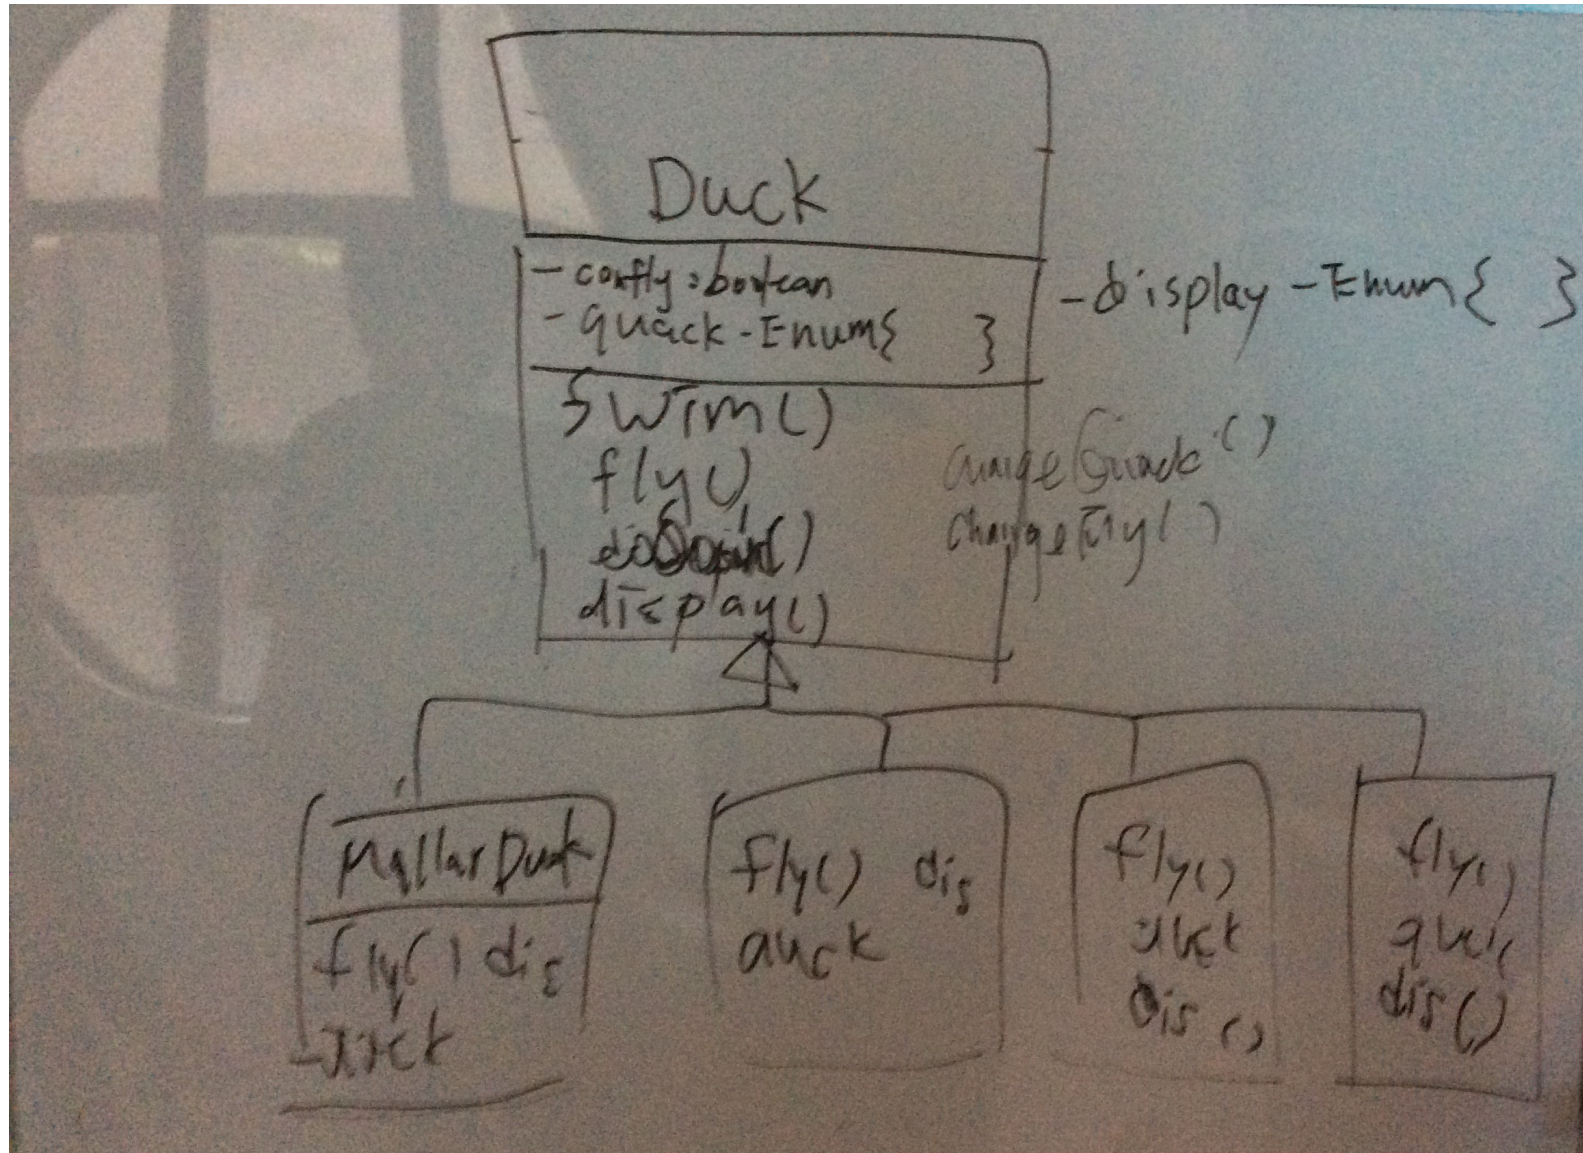 Duck
- canfly : boolean
- quack - Enum{ }
- display - Enum{ }
swim()
fly()
display()
changeQuack()
changeFly()
MallarDuck
fly() dis
fly() dis
auck
fly()
dis()
fly()
dis()